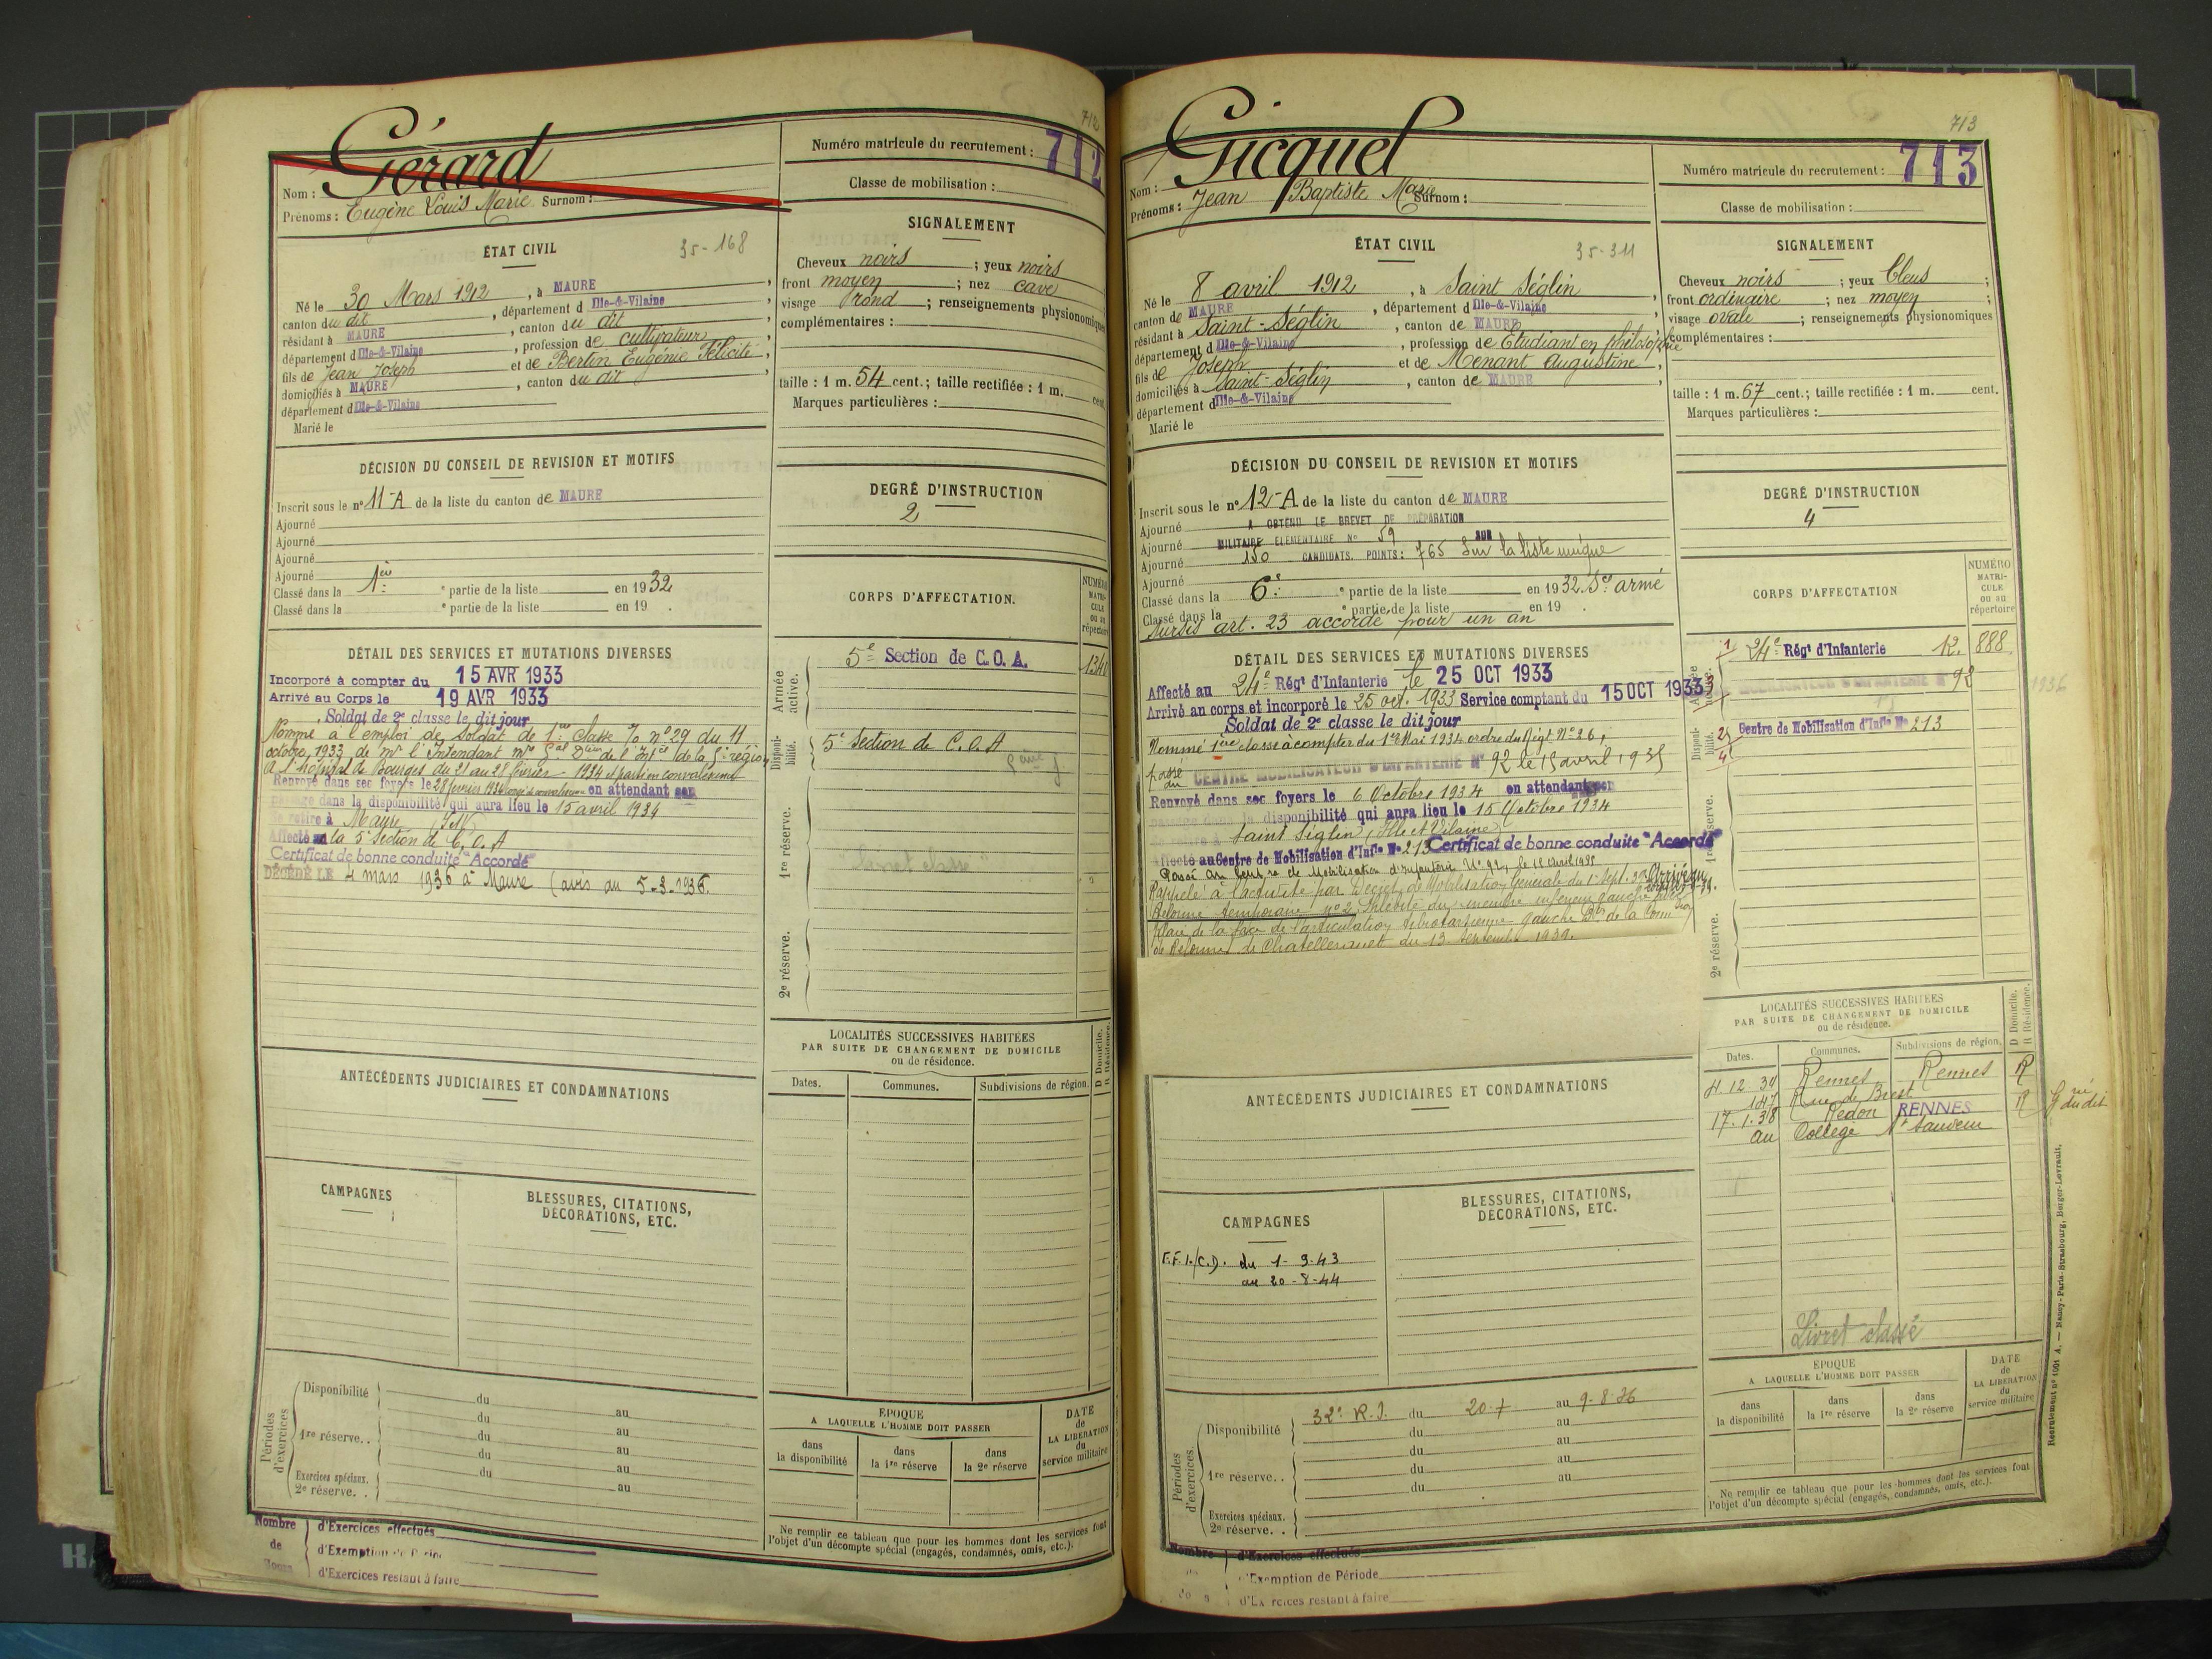 712
Gérard
Nom :
Prénoms : Eugène Louis Marie Surnom :
Numéro matricule du recrutement : 712
Classe de mobilisation :
ÉTAT CIVIL
35-168
Né le 30 Mars 1912, à MAURE
canton du dit, département d Ille-&-Vilaine
résidant à MAURE, canton du dit
département d Ille-&-Vilaine, profession de cultivateur
fils de Jean Joseph et de Bertin Eugénie Félicité
domiciliés à MAURE, canton du dit
département d Ille-&-Vilaine
Marié le
SIGNALEMENT
Cheveux noirs ; yeux noirs
front moyen ; nez cave
visage rond ; renseignements physionomiques
complémentaires :
taille : 1 m. 54 cent. ; taille rectifiée : 1 m. cent.
Marques particulières :
DÉCISION DU CONSEIL DE REVISION ET MOTIFS
Inscrit sous le n° 11-A de la liste du canton de MAURE
Ajourné
Ajourné
Ajourné
Ajourné
Classé dans la 1re partie de la liste en 1932
Classé dans la e partie de la liste en 19 .
DEGRÉ D'INSTRUCTION
2
CORPS D'AFFECTATION.
NUMÉRO MATRICULE ou au répertoire
Armée active.
5e Section de C.O.A. 1340
Disponibilité.
5e Section de C.O.A
1re réserve.
"Livret classé"
2e réserve.
DÉTAIL DES SERVICES ET MUTATIONS DIVERSES
Incorporé à compter du 15 AVR 1933
Arrivé au Corps le 19 AVR 1933
Soldat de 2e classe le dit jour
Nommé à l'emploi de Soldat de 1re Classe no 29 du 11
octobre 1933 de Mr l'Intendant de la 5e région
A l'hôpital de Bourges du 21 au 28 février 1934 et parti en convalescence
Renvoyé dans ses foyers le 28 février 1934 en attendant son
passage dans la disponibilité qui aura lieu le 15 avril 1934
Se retire à Maure
Affecté à la 5e Section de C.O.A
Certificat de bonne conduite "Accordé"
DÉCÉDÉ LE 4 mars 1936 à Maure (avis du 5-3-1936.
LOCALITÉS SUCCESSIVES HABITÉES
PAR SUITE DE CHANGEMENT DE DOMICILE
ou de résidence.
Dates. Communes. Subdivisions de région. D Domicile. R Résidence.
ANTÉCÉDENTS JUDICIAIRES ET CONDAMNATIONS
CAMPAGNES
BLESSURES, CITATIONS,
DÉCORATIONS, ETC.
Périodes d'exercices
Disponibilité du au
du au
1re réserve. . du au
du au
Exercices spéciaux. du au
2e réserve. . au
ÉPOQUE
A LAQUELLE L'HOMME DOIT PASSER
dans la disponibilité
dans la 1re réserve
dans la 2e réserve
DATE de LA LIBÉRATION du service militaire
Ne remplir ce tableau que pour les hommes dont les services font
l'objet d'un décompte spécial (engagés, condamnés, omis, etc.).
Nombre d'Exercices effectués
de d'Exemption de Période
d'Exercices restant à faire
713
Gicquel
Nom :
Prénoms : Jean Baptiste Marie Surnom :
Numéro matricule du recrutement : 713
Classe de mobilisation :
ÉTAT CIVIL
35-311
Né le 8 avril 1912, à Saint Séglin
canton de MAURE, département d Ille-&-Vilaine
résidant à Saint-Séglin, canton de MAURE
département d Ille-&-Vilaine, profession de Etudiant en philosophie
fils de Joseph et de Menant Augustine
domiciliés à Saint-Séglin, canton de MAURE
département d Ille-&-Vilaine
Marié le
SIGNALEMENT
Cheveux noirs ; yeux bleus ;
front ordinaire ; nez moyen ;
visage ovale ; renseignements physionomiques
complémentaires :
taille : 1 m. 67 cent. ; taille rectifiée : 1 m. cent.
Marques particulières :
DÉCISION DU CONSEIL DE REVISION ET MOTIFS
Inscrit sous le n° 12-A de la liste du canton de MAURE
Ajourné A OBTENU LE BREVET DE PRÉPARATION
Ajourné MILITAIRE ELEMENTAIRE No 59 SUR
Ajourné 150 CANDIDATS. POINTS : 765 Sur la liste unique
Ajourné
Classé dans la 6e partie de la liste en 1932. Sce armé
Classé dans la e partie de la liste en 19 .
Sursis art. 23 accordé pour un an
DEGRÉ D'INSTRUCTION
4
CORPS D'AFFECTATION
NUMÉRO MATRICULE ou au répertoire
24e Régt d'Infanterie 12. 888
MOBILISATEUR D'INFANTERIE N° 92 1936
Centre de Mobilisation d'Infie No 213
Disponibilité.
1re réserve.
2e réserve.
DÉTAIL DES SERVICES ET MUTATIONS DIVERSES
Affecté au 24e Régt d'Infanterie le 25 OCT 1933
Arrivé au corps et incorporé le 25 oct. 1933 Service comptant du 15 OCT 1933
Soldat de 2e classe le dit jour
Nommé 1ère classe à compter du 1er Mai 1934 ordre du Régt No 26,
passé au CENTRE MOBILISATEUR D'INFANTERIE N° 92 le 15 avril 1935
Renvoyé dans ses foyers le 6 Octobre 1934 en attendant son
passage dans la disponibilité qui aura lieu le 15 Octobre 1934
Se retire à Saint Séglin, (Ille et Vilaine)
Affecté au Centre de Mobilisation d'Infie No 213 Certificat de bonne conduite "Accordé"
Passé au Centre de Mobilisation d'Infanterie No 92, le 15 Avril 1935
Rappelé à l'activité par Décret de Mobilisation Générale du 1 Sept. 39. Arrivé au
Réformé temporaire no 2. Phlébite du membre inférieur gauche
Plaie de la face de l'articulation tibio tarsienne gauche Don de la Comion
de Réforme de Chatellerault du 13 Septembre 1939.
LOCALITÉS SUCCESSIVES HABITÉES
PAR SUITE DE CHANGEMENT DE DOMICILE
ou de résidence.
Dates. Communes. Subdivisions de région. D Domicile. R Résidence.
4.12.34 Rennes Rennes R
147 Rue de Brest
17.1.38 Redon RENNES R
au Collège St Sauveur
Livret classé
ANTÉCÉDENTS JUDICIAIRES ET CONDAMNATIONS
CAMPAGNES
F.F.I./C.D. du 1-9-43
au 20-8-44
BLESSURES, CITATIONS,
DÉCORATIONS, ETC.
Périodes d'exercices.
Disponibilité 32e R.I. du 20-7 au 9-8-36
du au
du au
1re réserve. . du au
du au
Exercices spéciaux.
2e réserve. .
ÉPOQUE
A LAQUELLE L'HOMME DOIT PASSER
dans la disponibilité
dans la 1re réserve
dans la 2e réserve
DATE de LA LIBÉRATION du service militaire
Ne remplir ce tableau que pour les hommes dont les services font
l'objet d'un décompte spécial (engagés, condamnés, omis, etc.).
Recrutement n° 1091 A. — Nancy-Paris-Strasbourg, Berger-Levrault.
Nombre d'Exercices effectués
d'Exemption de Période
d'Exercices restant à faire